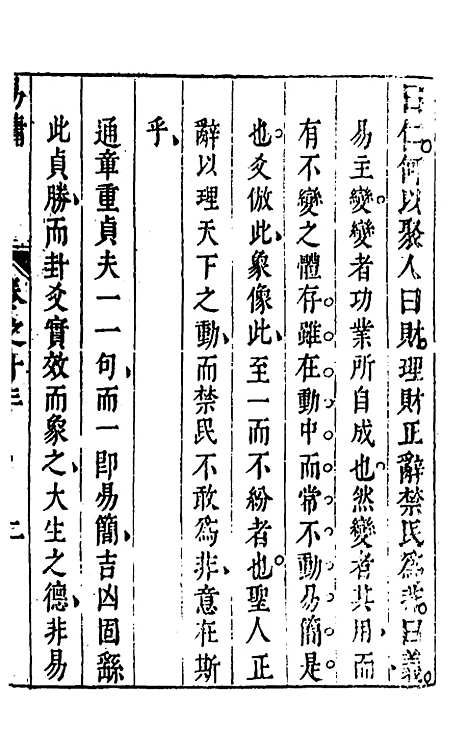 曰仁何以聚人曰財理財正辭禁民爲非曰義
易主變變者功業所自成也然變者其用而
有不變之體存雖在動中而常不動易簡是
也爻倣此象像此至一而不紛者也聖人正
辭以理天下之動而禁民不敢爲非意在斯
乎
通章重貞夫一一句而一卽易簡吉凶固繇
此貞勝而卦爻實效而象之大生之德非易
易 卷之十三 二